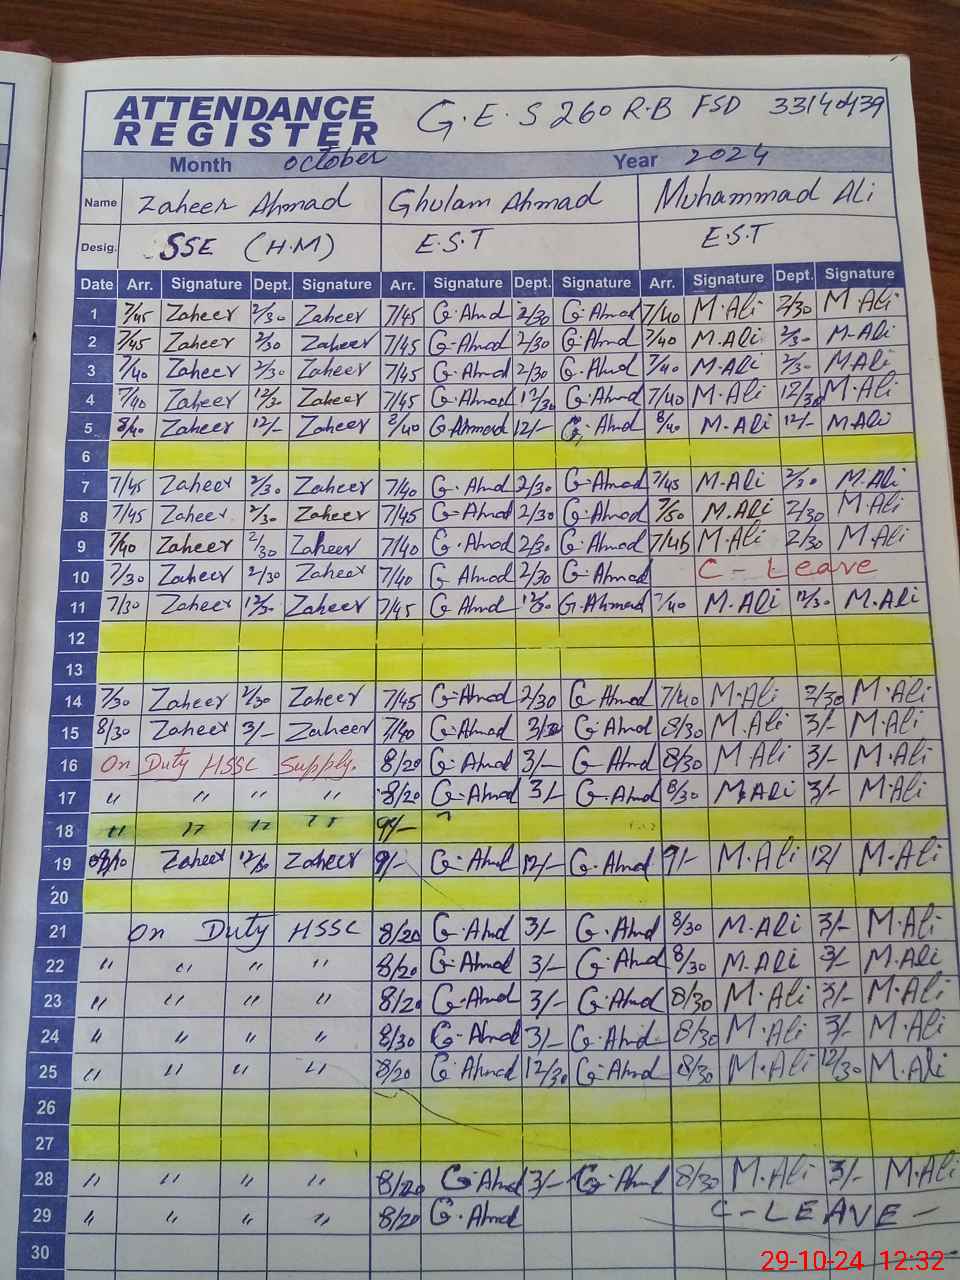 ATTENDANCE REGISTER G.E.S 260 R.B FSD 33140439
Month October Year 2024
Name Zaheer Ahmad Ghulam Ahmad Muhammad Ali
Desig. SSE (H.M) E.S.T E.S.T
Date Arr. Signature Dept. Signature Arr. Signature Dept. Signature Arr. Signature Dept. Signature
1 7/45 Zaheer 2/30 Zaheer 7/45 G.Ahmd 2/30 G.Ahmd 7/40 M.Ali 2/30 M.Ali
2 7/45 Zaheer 2/30 Zaheer 7/45 G.Ahmd 2/30 G.Ahmd 7/40 M.Ali 2/30 M.Ali
3 7/40 Zaheer 2/30 Zaheer 7/45 G.Ahmd 2/30 G.Ahmd 7/40 M.Ali 2/30 M.Ali
4 7/40 Zaheer 12/30 Zaheer 7/45 G.Ahmad 12/30 G.Ahmd 7/40 M.Ali 12/30 M.Ali
5 8/40 Zaheer 12/- Zaheer 8/40 G Ahmad 12/- G.Ahmd 8/40 M.Ali 12/- M.Ali
6
7 7/45 Zaheer 2/30 Zaheer 7/40 G.Ahmd 2/30 G.Ahmad 7/45 M.Ali 2/30 M.Ali
8 7/45 Zaheer 2/30 Zaheer 7/45 G.Ahmad 2/30 G.Ahmd 7/50 M.Ali 2/30 M.Ali
9 7/40 Zaheer 2/30 Zaheer 7/40 G.Ahmad 2/30 G.Ahmd 7/45 M.Ali 2/30 M.Ali
10 7/30 Zaheer 2/30 Zaheer 7/40 G Ahmad 2/30 G.Ahmad C - Leave
11 7/30 Zaheer 12/30 Zaheer 7/45 G Ahmd 12/30 G.Ahmad 7/40 M.Ali 12/30 M.Ali
12
13
14 7/30 Zaheer 2/30 Zaheer 7/45 G.Ahmd 2/30 G.Ahmad 7/40 M.Ali 2/30 M.Ali
15 8/30 Zaheer 3/- Zaheer 7/40 G.Ahmad 3/ G.Ahmd 8/30 M.Ali 3/- M.Ali
16 On Duty HSSC Supply. 8/20 G.Ahmad 3/- G.Ahmad 8/30 M Ali 3/- M.Ali
17 " " " " 8/20 G.Ahmad 3/- G.Ahmad 8/30 M.Ali 3/- M.Ali
18 " " " " 9/-
19 Zaheer 12/ Zaheer 9/- G.Ahmd 12/- G.Ahmd 9/- M.Ali 12/ M.Ali
20
21 On Duty HSSC 8/20 G.Ahmd 3/- G.Ahmd 8/30 M.Ali 3/- M.Ali
22 " " " " 8/20 G.Ahmd 3/- G.Ahmd 8/30 M.Ali 3/- M.Ali
23 " " " " 8/20 G.Ahmd 3/- G.Ahmd 8/30 M.Ali 3/- M.Ali
24 " " " " 8/30 G.Ahmd 3/- G.Ahmd 8/30 M.Ali 3/- M.Ali
25 " " " " 8/20 G.Ahmad 12/30 G.Ahmad 8/30 M.Ali 12/30 M.Ali
26
27
28 " " " " 8/20 G.Ahmd 3/- G.Ahmd 8/30 M.Ali 3/- M.Ali
29 " " " " 8/20 G.Ahmd C-LEAVE-
30
29-10-24 12:32